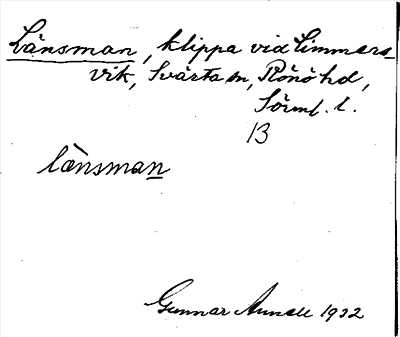 Länsman, klippa vid Limmars-
vik, Svärta sn, Rönö hd,
Sörml. l.
13
lænsman
Gunnar 1932